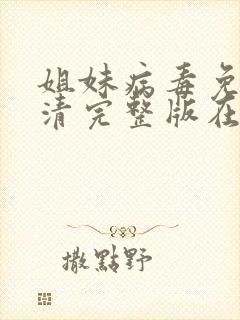 姐妹病毒免
清完整版在
撒點野